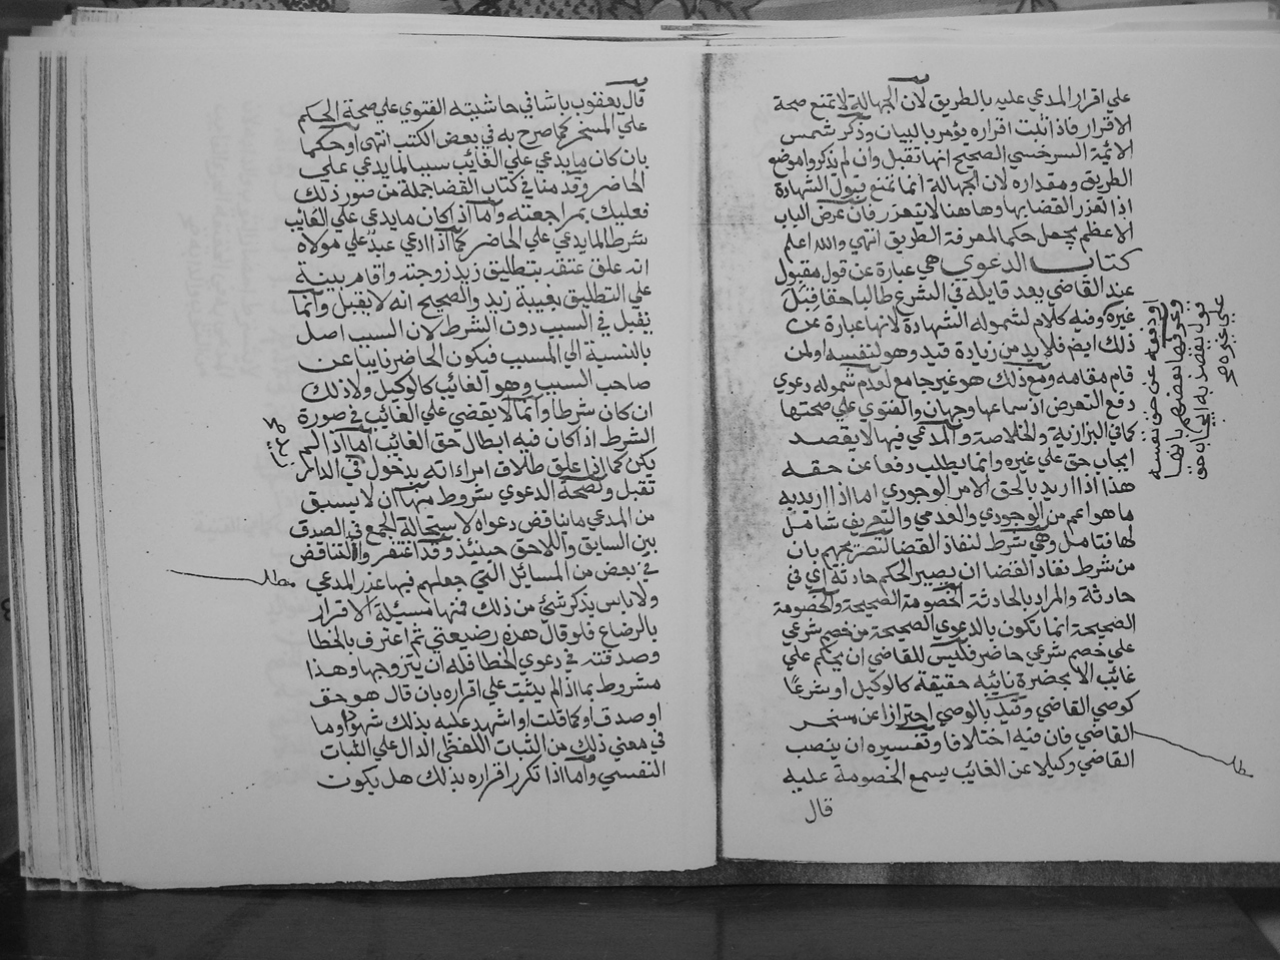 علي اقرار المدعي عليه بالطريق لان الجهالة لا تمنع صحة
الاقرار فاذا ثبت اقراره يؤمر بالبيان وذكر شمس
الائمة السرخسي الصحيح انها تقبل وان لم يذكروا موضع
الطريق ومقداره لان الجهالة انما تمنع قبول الشهادة
اذا تعذر القضا بها وهاهنا لا يتعذر فان عرض الباب
الاعظم يجعل حكما لمعرفة الطريق انتهي والله اعلم
كتاب الدعوي هي عبارة عن قول مقبول
عند القاضي يقصد قايله في الشرع طالبا حقا قبل
غيره وفيه كلام لشموله الشهادة لانها عبارة عن
ذلك ايضم فلابد من زيادة قيد وهو لنفسه او لمن
قام مقامه ومع ذلك هو غير جامع لعدم شموله دعوي
دفع التعرض اذ سماعها وجهان والفتوي علي صحتها
كما في البزازية والخلاصة والمدعي فيها لا يقصد
ايجاب حق علي غيره وانما يطلب دفعا عن حقه
هذا اذا اريد بالحق الامر الوجودي اما اذا اريد به
ما هو اعم من الوجودي والعدمي والتعريف شامل
لها فتامل وهي شرط لنفاذ القضا لتصريحهم بان
من شرط نفاذ القضا ان يصير الحكم حادثة اي في
حادثة والمراد بالحادثة الخصومة الصحيحة والخصومة
الصحيحة انما تكون بالدعوي الصحيحة من خصم شرعي
علي خصم شرعي حاضر فليس للقاضي ان يحكم علي
غائب الا بحضرة نائبه حقيقة كالوكيل او شرعا
كوصي القاضي وقيد بالوصي احترازا عن مسخر
القاضي فان فيه اختلافا وتفسيره ان ينصب
القاضي وكيلا عن الغائب يسمع الخصومة عليه
قال
او دفعه عن حق نفسه
وعرفها بعضهم بانها
قول يقصد به ايجاب حق
علي غيره صح
مطلب
قال يعقوب باشا في حاشيته الفتوي علي صحة الحكم
علي المسخر كما صرح به في بعض الكتب انتهي او حكما
بان كان ما يدعي علي الغائب سببا لما يدعي علي
الحاضر وقدمنا في كتاب القضا جملة من صور ذلك
فعليك بمراجعته واما اذا كان ما يدعي علي الغايب
شرطا لما يدعي علي الحاضر كما اذا ادعي عبد علي مولاه
انه علق عتقه بتطليق زيد زوجته واقام بينة
علي التطليق بغيبة زيد والصحيح انه لا يقبل وانما
يقبل في السبب دون الشرط لان السبب اصل
بالنسبة الي المسبب فيكون الحاضر نايبا عن
صاحب السبب وهو الغائب كالوكيل ولا ذلك
ان كان شرطا وانما لا يقضي علي الغائب في صورة
الشرط اذا كان فيه ابطال حق الغايب اما اذا لم
يكن كما اذا علق طلاق امراءاته بدخول في الدار
تقبل ولصحة الدعوي شروط منها ان لا يسبق
من المدعي ما يناقض دعواه لاستحالة الجمع في الصدق
بين السابق واللاحق حينيذ وقد اغتفروا التناقض
في بعض من المسائل التي جعلهم فيها عذر المدعي
ولا باس بذكر شئ من ذلك فمنها مسئيلة الاقرار
بالرضاع فلو قال هذه رضيعتي ثم اعترف بالخطا
وصدقته في دعوي الخطا فله ان يتزوجها وهذا
مشروط بما اذا لم يثبت علي اقراره بان قال هو حق
او صدق او كما قلت او اشهد عليه بذلك شهودا وما
في معني ذلك من الثبات اللفظي الدال علي الثبات
النفسي واما اذا تكرر اقراره بذلك هل يكون
مطلب